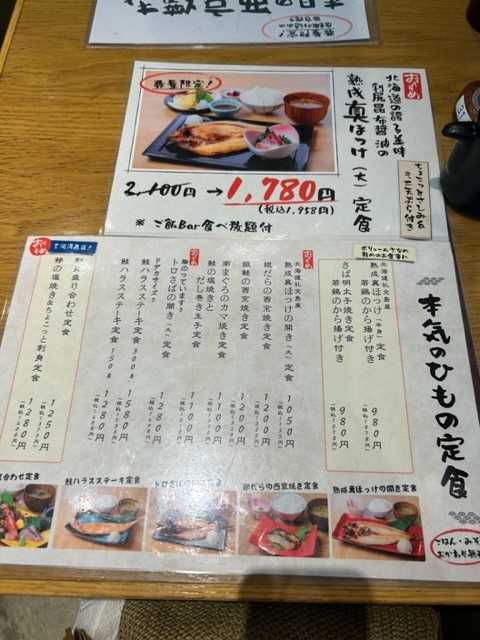 数量限定!
おすすめ
北海道の誇る美味
利尻昆布醤油の
熟成真ほっけ(大)定食
ちょこっとさしみ&
ミニ天ぷら付き
2,100円→1,780円
(税込1,958円)
※ご飯Bar食べ放題付
本気のひもの定食
ごはん・みそ
おかわり無
ボリューム
熟成真ほっけ(半身)定食
若鶏のから揚げ付き
980円
さば明太子焼き定食
若鶏のから揚げ付き
980円
北海道礼文島産
熟成真ほっけの開き(大)定食
1050円
銀だらの西京焼き定食
1200円
銀鮭の西京焼き定食
1200円
南まぐろのカマ焼き定食
1100円
鮭の塩焼きと
だし巻き玉子定食
1100円
おすすめ
脂のっています!
トロさばの開き(大)定食
1100円
ドデカサイズ!
鮭ハラスステーキ定食 300g
1580円
鮭ハラスステーキ定食 150g
1280円
おすすめ
刺身盛り合わせ定食
1250円
鯵の塩焼き&ちょこっと刺身定食
1280円
合わせ定食
鮭ハラスステーキ定食
トロさばの開き(大)定食
銀だらの西京焼き定食
熟成真ほっけの開き定食